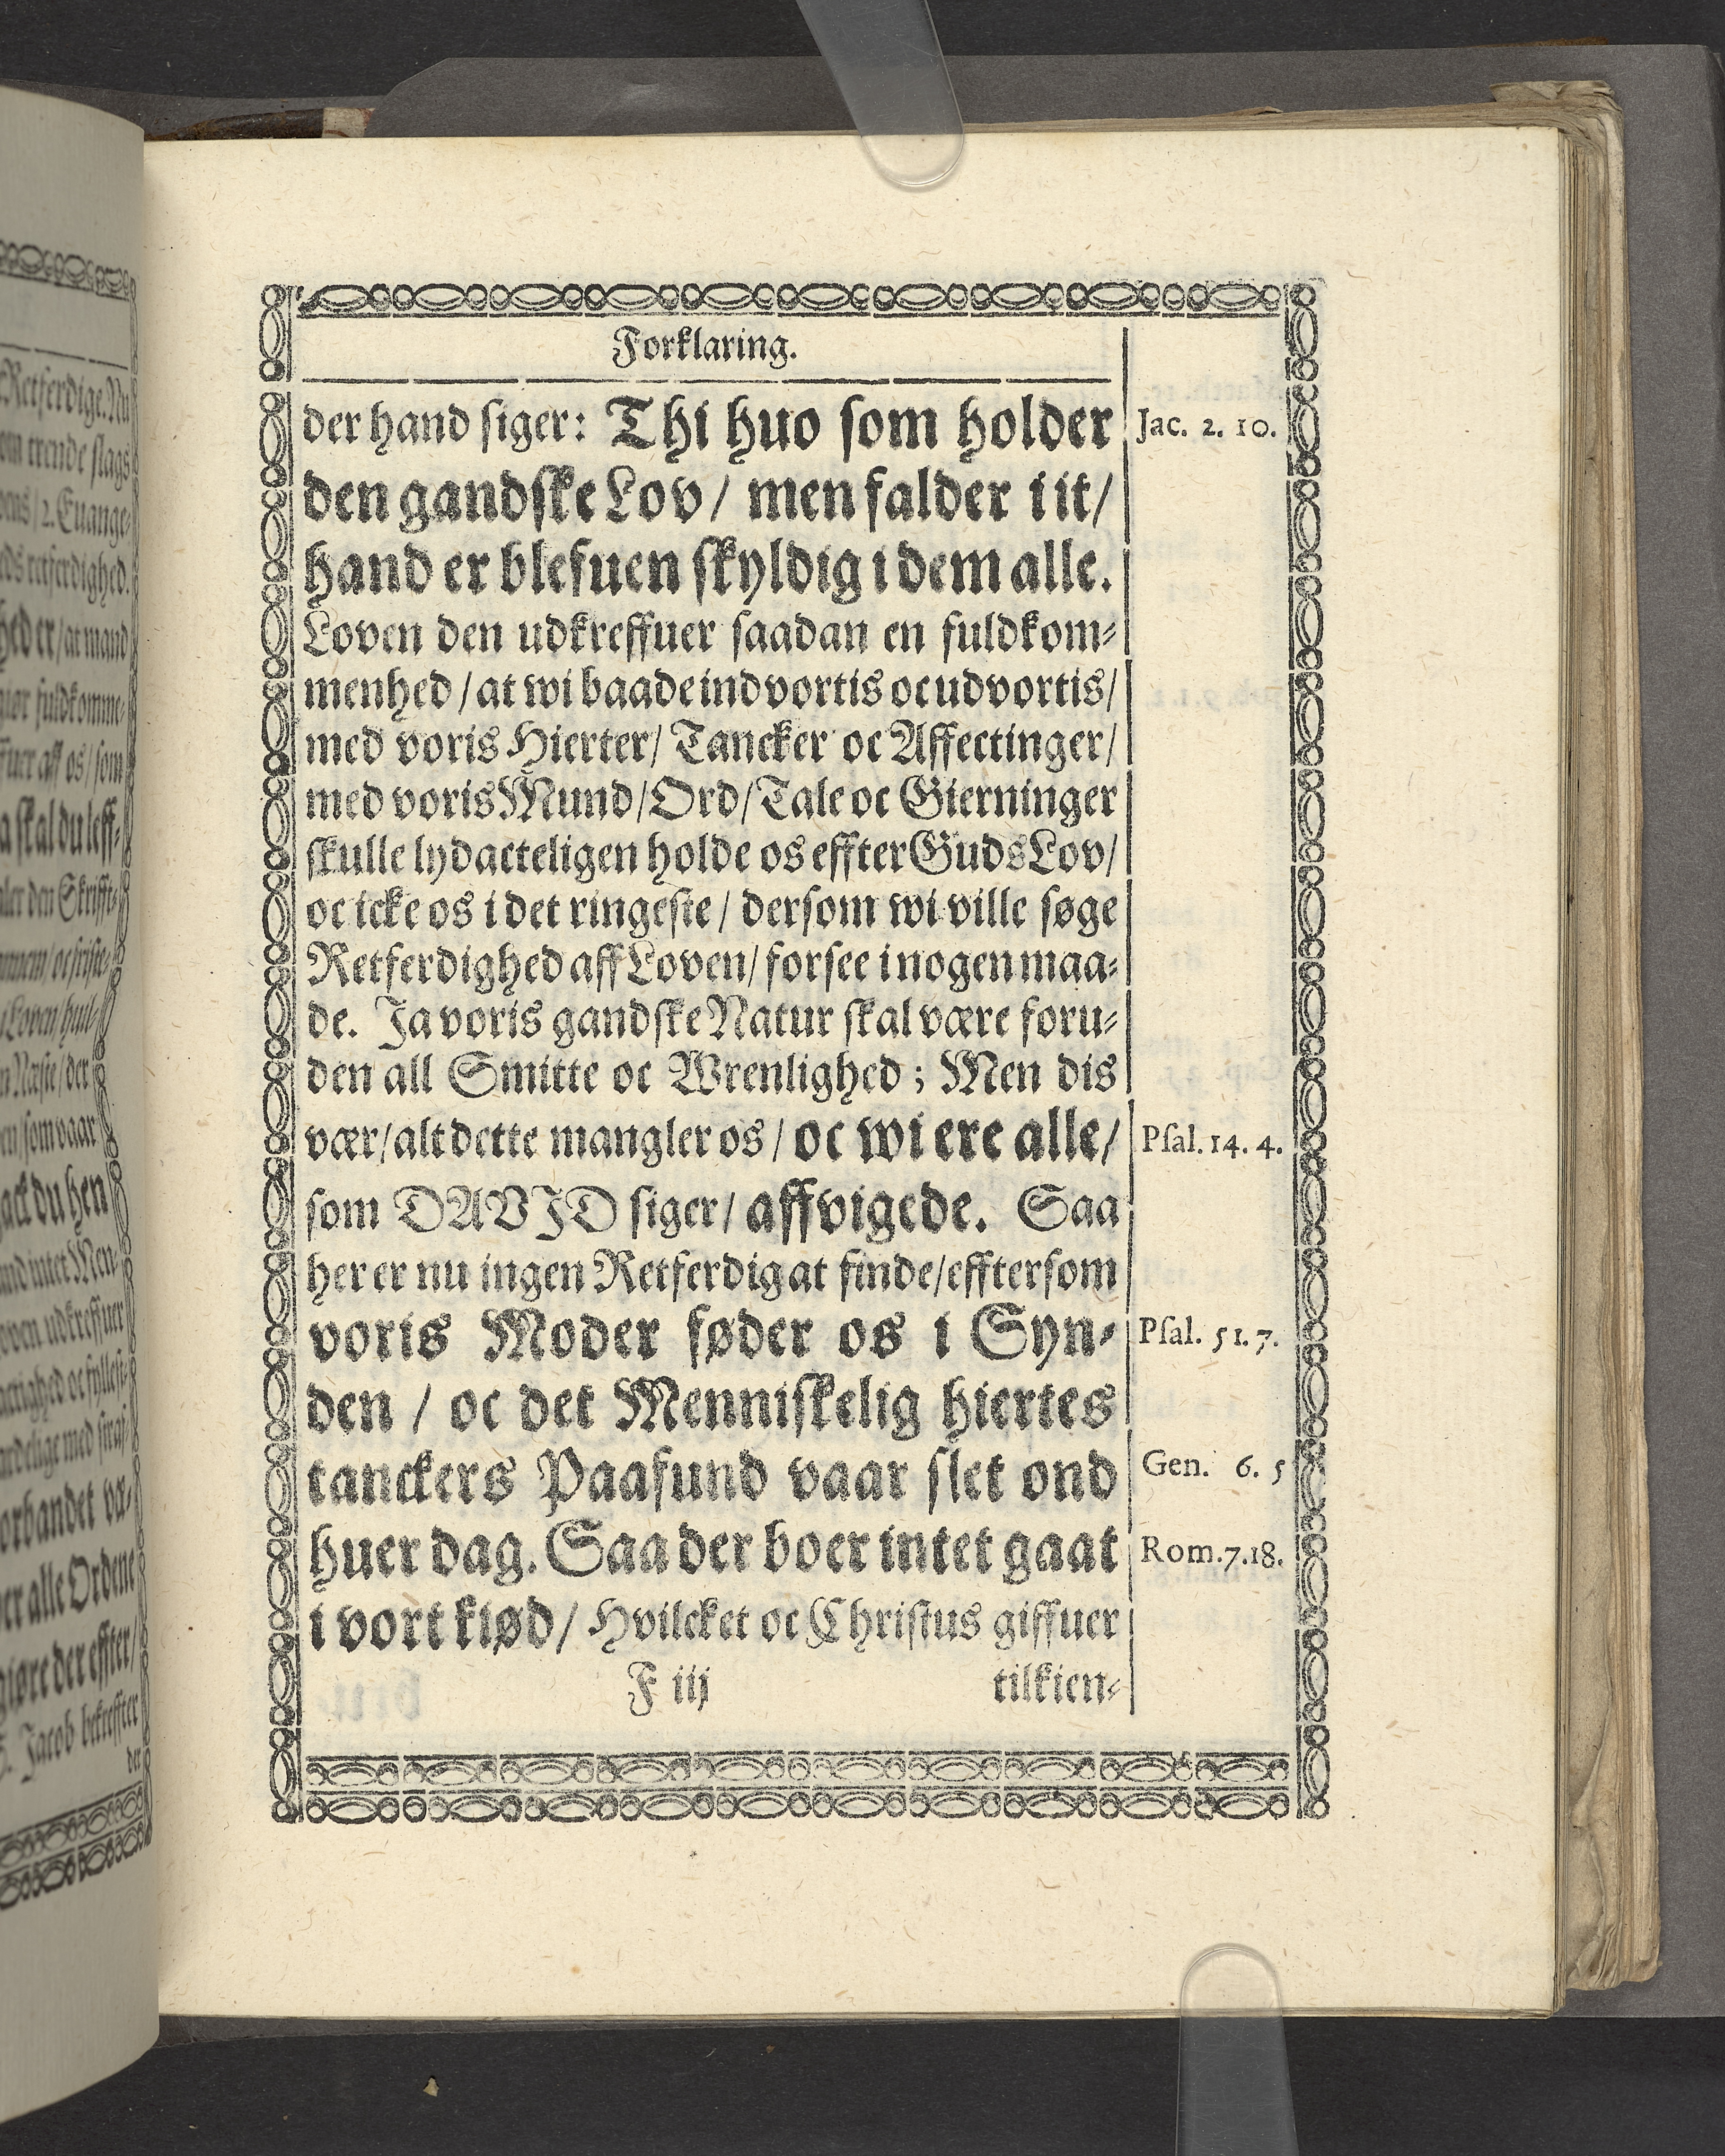 Forklaring.
der hand siger: Thi huo som holder
Jac. 2. 10.
den gandske Lov / men falder i it /
hand er blefuen skyldig i dem alle.
Loven den udkreffuer saadan en fuldkom-
menhed / at wi baade indvortis oc udvortis /
med voris Hierter / Tancker oc Affectinger /
med voris Mund / Ord / Tale oc Gierninger
skulle lydacteligen holde os effter Guds Lov /
oc icke os i det ringeste / dersom wi ville søge
Retferdighed aff Loven / forsee i nogen maa-
de. Ja voris gandske Natur skal være foru-
den all Smitte oc Wrenlighed ; Men dis
vær / alt dette mangler os / oc wi ere alle /
Psal. 14. 4.
som DAVID siger / affvigede. Saa
her er nu ingen Retferdig at finde / efftersom
voris Moder føder os i Syn-
Psal. 51. 7.
den / oc det Menniskelig hiertes
tanckers Paafund vaar slet ond
Gen. 6. 5
huer dag. Saa der boer intet gaat
Rom. 7. 18.
i vort kiød / Hvilcket oc Christus giffuer
F iij
tilkien-